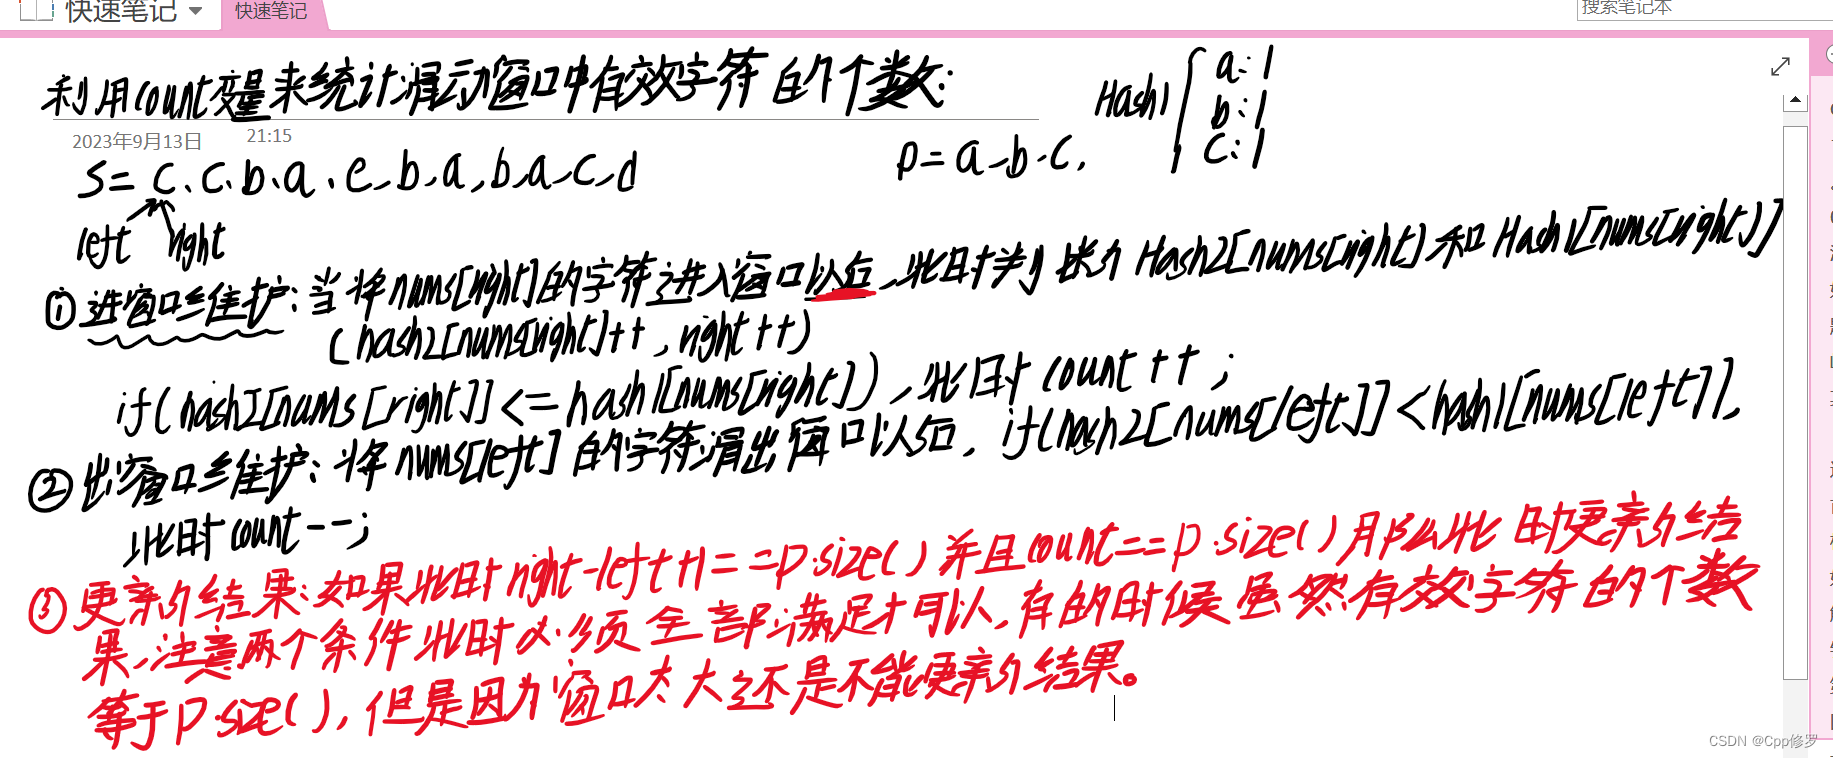 快速笔记
快速笔记
搜索笔记本
利用count变量来统计滑动窗口中有效字符的个数:
2023年9月13日 21:15
Hash1 { a:1
b:1
c:1
S= c、c、b、a、e、b、a、b、a、c、d
P= a、b、c、
left right
① 进窗口维护:当将nums[right]的字符进入窗口以后,此时判断 Hash2[nums[right]和Hash1[nums[right]]
(hash2[nums[right]++, right++)
if(hash2[nums[right]]<=hash1[nums[right]]), 此时count++;
② 出窗口维护:将nums[left]的字符滑出窗口以后, if(hash2[nums[left]]<hash1[nums[left]],
此时count--;
③ 更新结果:如果此时right-left+1==p.size()并且count==p.size()那么此时更新结
果、注意两个条件此时必须全部满足才可以,有的时候虽然有效字符的个数
等于p.size(),但是因为窗口太大还是不能更新结果。
CSDN @Cpp修罗